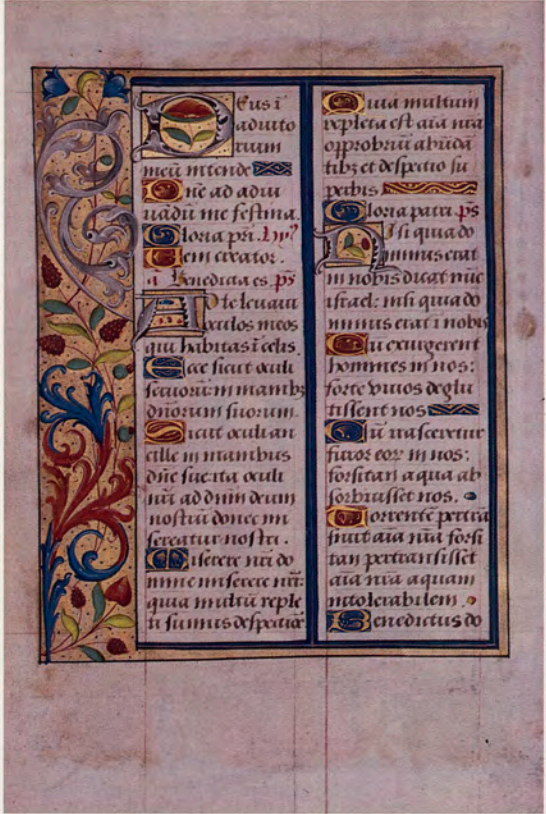 Deus ī
adiuto
rium
meū intende
Dñe ad adiu
uādū me festina.
Gloria pr̄i. ymꝰ
Uem creator.
añ Benedicta es. ps̄
Ad te leuaui
oculos meos
qui habitas ī celis.
Ecce sicut oculi
seruorū: in manibꝫ
dñorum suorum.
Sicut oculi an
cille in manibus
dñe sue: ita oculi
nr̄i ad dñm deum
nostrū donec mi
sereatur nostri.
Miserere nr̄i do
mine miserere nr̄i:
quia multū reple
ti sumus despectiōe
Quia multum
repleta est aīa nr̄a
opprobriū abūdā
tibꝫ et despectio su
perbis
Gloria patri. ps̄
Nisi quia do
minus erat
in nobis dicat nūc
israel: nisi quia do
minus erat ī nobis
Cū exurgerent
homines in nos:
forte viuos deglu
tissent nos
Cū irasceretur
furor eorꝝ in nos:
forsitan aqua ab
sorbuisset nos.
Torrentē pertrā
siuit aīa nr̄a forsi
tan pertransisset
aīa nr̄a aquam
intolerabilem.
Benedictus do